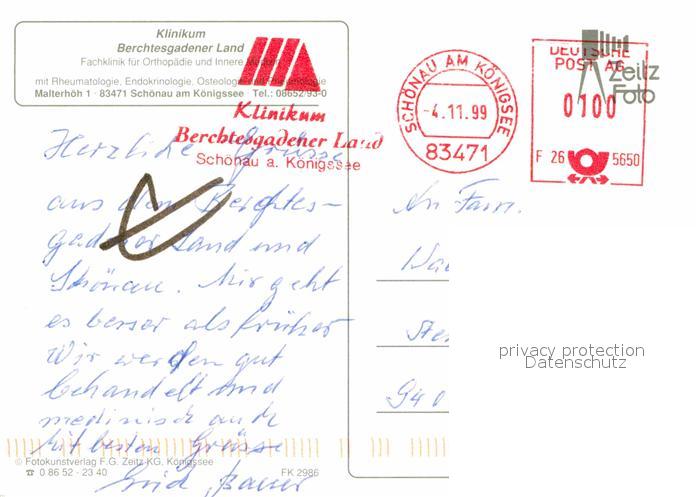 Klinikum
Berchtesgadener Land
Fachklinik für Orthopädie und Innere Medizin
mit Rheumatologie, Endokrinologie, Osteologie
Malterhöh 1 · 83471 Schönau am Königssee · Tel.: 08652/93-0
Klinikum
Berchtesgadener Land
Schönau a. Königssee
SCHÖNAU AM KÖNIGSEE
-4.11.99
83471
DEUTSCHE
POST AG
0100
F 26 5650
Zeitz
Foto
Herzliche Grüsse
aus dem Berchtes-
gadener Land und
Schönau. Mir geht
es besser als früher
Wir werden gut
behandelt und
medizinisch auch
Mit besten Grüsse
Bauer
An Fam.
privacy protection
Datenschutz
© Fotokunstverlag F.G. Zeitz KG, Königssee
☎ 0 86 52 - 23 40
FK 2986